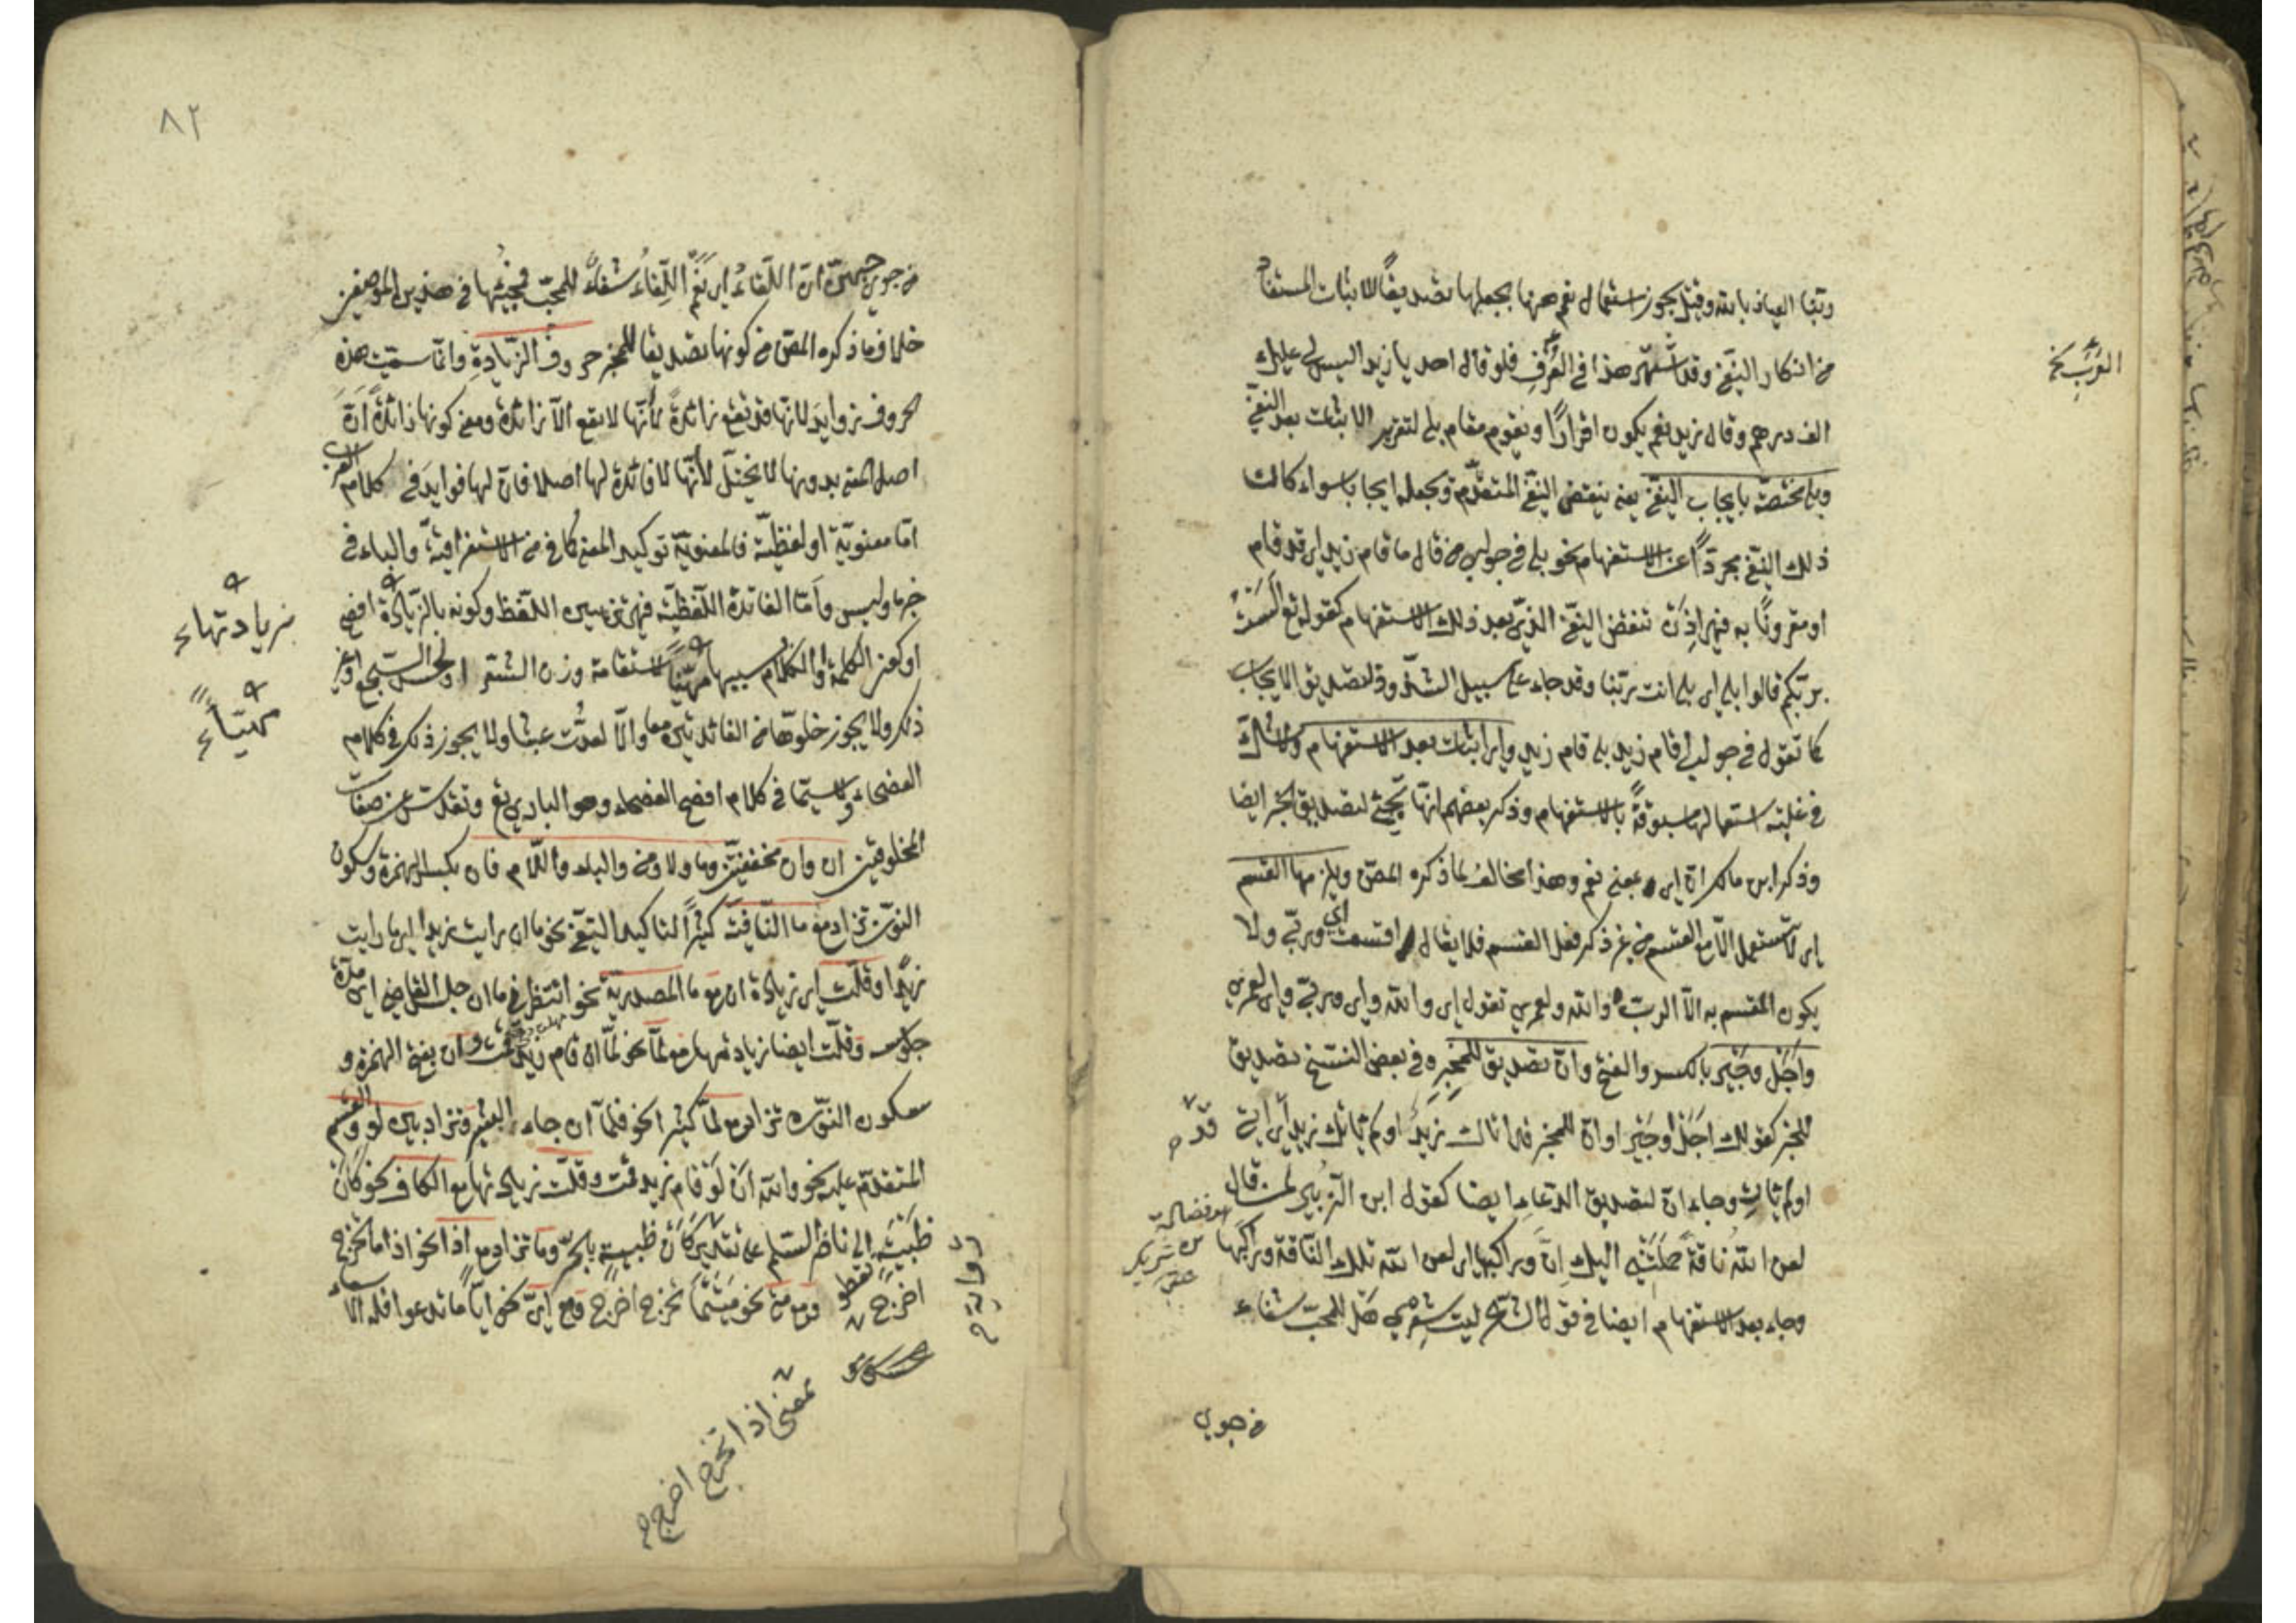 وتبنا العياذ بالله وقيل يجوز استعمال نعم ههنا بجعلها تصديقًا للاثبات المستفاد
من انكار النفي وقد اشتهر هذا في العرف فلو قال احد يا زيد اليس لي عليك
العَرَب نخ
الف درهم وقال زيد نعم يكون اقرارًا ويقوم مقام بلى لتقرير الاثبات بعد النفي
وبلى مختصّة بايجاب النفي يعني ينقض النفي المتقدّم وبجعله ايجابا سواء كان
ذلك النفي مجردًا عن الاستفهام نحو بلى في جواب من قال ما قام زيد اي قد قام
او مقرونًا به فهي اذن تنقض النفي الذي بعد ذلك الاستفهام كقوله تع الست
بربكم قالوا بلى اي بلى انت ربّنا وقد جاء على سبيل الشذوذ لتصديق الايجاب
كما تقول في جواب اقام زيد بلى قام زيد واي اثبات بعد الاستفهام ولا شك
في غلبة استعمالها مسبوقةً بالاستفهام وذكر بعضهم انها تجئ لتصديق الخبر ايضا
وذكر ابن مالك ان اي بمعنى نعم وهذا مخالف لما ذكره المص ويلزمها القسم
اي لا تستعمل الا مع القسم من غير ذكر فعل القسم فلا يقال اي اقسمت وربّي ولا
يكون المقسم به الا الرب والله ولعمري تقول اي والله واي وربّي واي لعمري
واَجَل وجَيْرِ بالكسر والفتح وانّ تصديق للمخبِر وفي بعض النسخ تصديق
للخبر كقولك اجَل او جَير او انّ للمخبر فلما قال اتاك زيدٌ او لم ياتك زيد اي انه قد
اولم يات وجاء انّ لتصديق الدعاء ايضا كقول ابن الزبير لمن قال
هو فضالة بن شريك
لعن الله ناقةً حملتني اليك اِنَّ وراكبها اي لعن الله تلك الناقة وراكبها
وجاء بعد الاستفهام ايضا في قول الشاعر ليت شعري هل للمحبّ شفاء
من جوى
٨٢
من جوى حبهنّ ان اللقاءُ اي نعم اللقاءُ شفاءٌ للمحبّ فمجيئها في هذين الموضعين
خلاف ما ذكره المص من كونها تصديقا للمخبر حروف الزيادة وانما سميت هذه
الحروف زوايد لانها قد تقع زائدةً لا انّها لا تقع الا زائدة ومعنى كونها زائدةً انّ
اصل المعنى بدونها لا يختلّ لا انّها لا فائدة لها اصلا فان لها فوايد في كلام العرب
امّا معنويّة او لفظيّة فالمعنويّة توكيد المعنى كما في من الاستغراقيّة والباء في
خبر ما وليس واَمّا الفائدة اللفظيّة فهي تزيين اللفظ وكونه بالزيادة افصح
زيادتها
او كون الكلمة او الكلام بسببها مهيّأً لاستقامة وزن الشعر او لحسن السجع او غير
مهيّأةً
ذلك ولا يجوز خلوّها من الفائدتين معا والا لعدّت عبثا ولا يجوز ذلك في كلام
الفصحاء ولا سيما في كلام افصح الفصحاء وهو الباري تع وتقدس عن صفات
المخلوقين ان وان مخففتين وما ولا ومن والباء واللام فان بكسر الهمزة وسكون
النون تزاد مع ما النافية كثيرًا لتاكيد النفي نحو ما ان رايت زيدا اي ما رايت
زيدًا وقلّت اي زيادة ان مع ما المصدرية نحو انتظرني ما ان جلس القاضي اي مدّة
جلوسه وقلّت ايضا زيادتها مع لمّا نحو لمّا ان قام زيد قمت وان بفتح الهمزة و
سكون النون تزاد مع لمّا كثيرا نحو فلمّا ان جاء البشير وتزاد بين لو والقسم
المتقدّم عليه نحو والله ان لو قام زيد قمت وقلّت زيادتها مع الكاف نحو كان
ظبية الى ناضر السلم على تقدير كان ظبيةٍ بالجرّ وما تزاد مع اذا نحو اذا ما تخرج
رواية
اخرج ومع متى نحو متى ما تخرج اخرج ومع ايّ نحو ايّا ما تدعوا فله الاسماء
بمعنى اذا تخرج اخرج